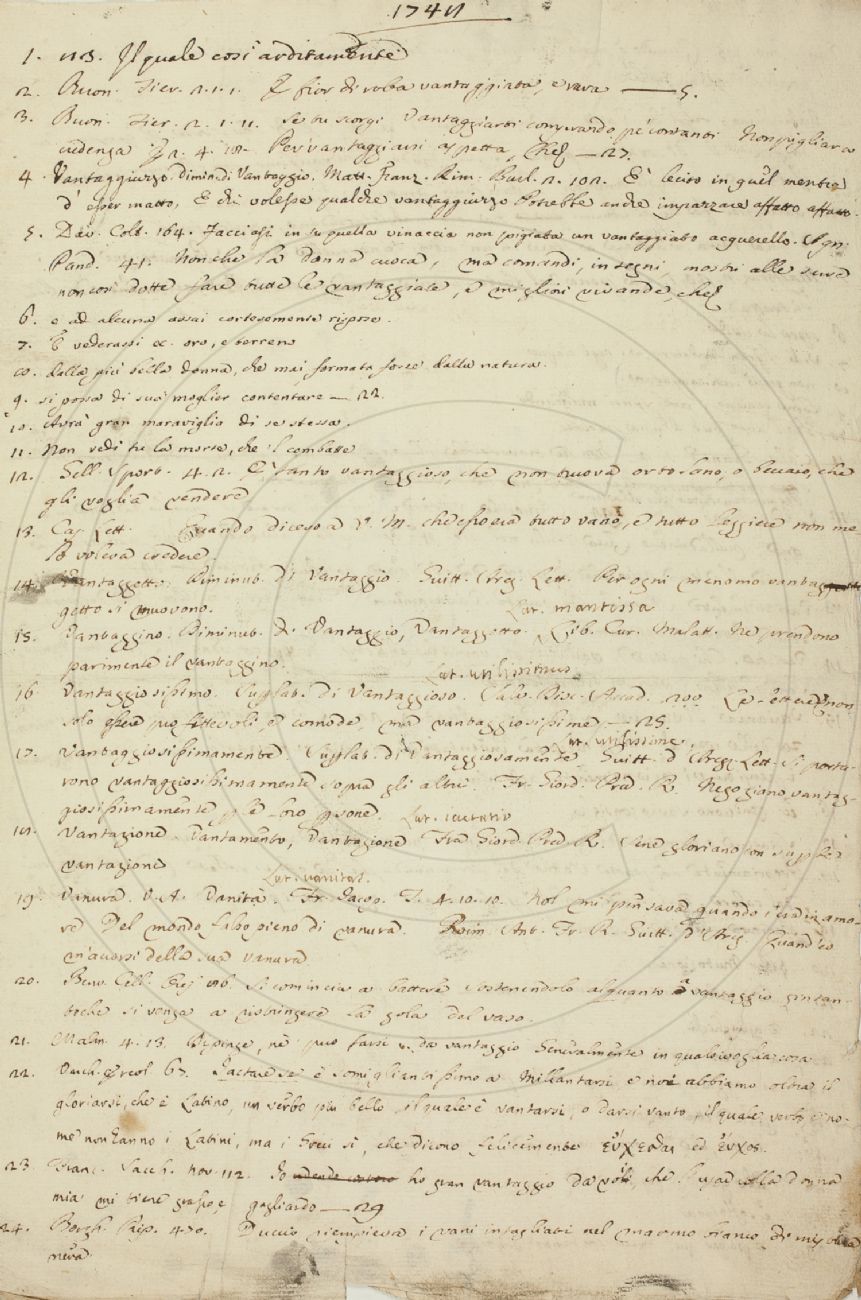 1. n3. Il quale così arditamente
2. Buon. Fier. 2. 1. 1. È fior di roba vantaggiata, e rara — 5.
3. Buon. Fier. 2. 1. 11. Se tu scorgi Vantaggiarti comperando, pe' contanti Non pigliar a
credenza 4. Per vantaggiarsi aspetta, che — 27.
4. Vantaggiuzzo. Dimin. di Vantaggio. Matt. Franz. Rim. Burl. 2. 102. E' lecito in quel mentre
d' esser matto, E chi volesse qualche vantaggiuzzo Potrebbe anche impazzare affatto affatto.
5. Dav. Colt. 164. Facciasi in su quella vinaccia non pigiata un vantaggiato acquerello. Agn.
Pand. 41. Non che la donna cuoca, ma comandi, insegni, mostri alle serve
non così dotte fare tutte le vantaggiate, e migliori vivande, che
6. e ad alcuna assai cortesemente rispose.
7. E vederassi ec. oro, e terreno
8. dalla più bella donna, che mai formata fosse dalla natura.
9. si possa di sua moglier contentare — 22.
10. Avrà gran maraviglia di se stessa.
11. Non vedi tu la morte, che 'l combatte
12. Sell. Sport. 4. 2. E' tanto vantaggioso, che non truova ortolano, o beccaio, che
gli voglia vendere
13. Cas. Lett. Quando diceva a V. M. che era tutto vano, e tutto leggiere non me
lo voleva credere.
14. Vantaggetto. Diminut. di Vantaggio. Guitt. Areg. Lett. Per ogni menomo vantag
getto si muovono. Lat. mantissa
15. Vantaggino. Diminut. di Vantaggio, Vantaggetto. Lib. Cur. Malatt. Ne prendono
parimente il vantaggino. Lat. utilissimus
16. Vantaggiosissimo. Superlat. di Vantaggioso. Salv. Disc. Accad. Le non
solo comode, ma vantaggiosissime — 25.
Lat. utilissime.
17. Vantaggiosissimamente. Superlat. di Vantaggiosamente. Guitt. d'Arezz. Lett. Si porta-
rono vantaggiosissimamente sopra gli altri. Fr. Giord. Pred. R. Negoziano vantag-
giosissimamente per le loro persone. Lat.
18. Vantazione. Vantamento, Vantazione Fra Giord. Pred. R. Sene gloriano con
vantazione Lat. vanitas.
19. Vanura. V. A. Vanità. Fr. Jacop. T. 4. 10. 10. Nol mi pensava quando
Del mondo falso pieno di vanura. Rim. Ant. Fr. R. Guitt. d'Arez. Quand'eo
m'accorsi della sua vanura
20. Benv. Cell. Oref. Si comincia a battere sostenendolo alquanto vantaggio
toche si venga a ristringere la gola del vaso.
21. Malm. 4. 13. Dipinge, nè può farsi da vantaggio Generalmente in qualsivoglia cosa
22. Varch. Ercol. 67. è somigliantissimo a Millantarsi, e noi abbiamo oltra il
gloriarsi, che è Latino, un verbo più bello, il quale è vantarsi, o darsi vanto, il quale verbo e no-
me non hanno i Latini, ma i Greci sì, che dicono felicemente εὔχεσθαι ed εὖχος.
23. Franc. Sacch. nov. 112. Io ho gran vantaggio da voi, che l'usar colla donna
mia mi tiene grasso, e gagliardo — 29
24. Borgh. Rip. Duccio riempieva i vani intagliati nel marmo bianco di mistura
nera